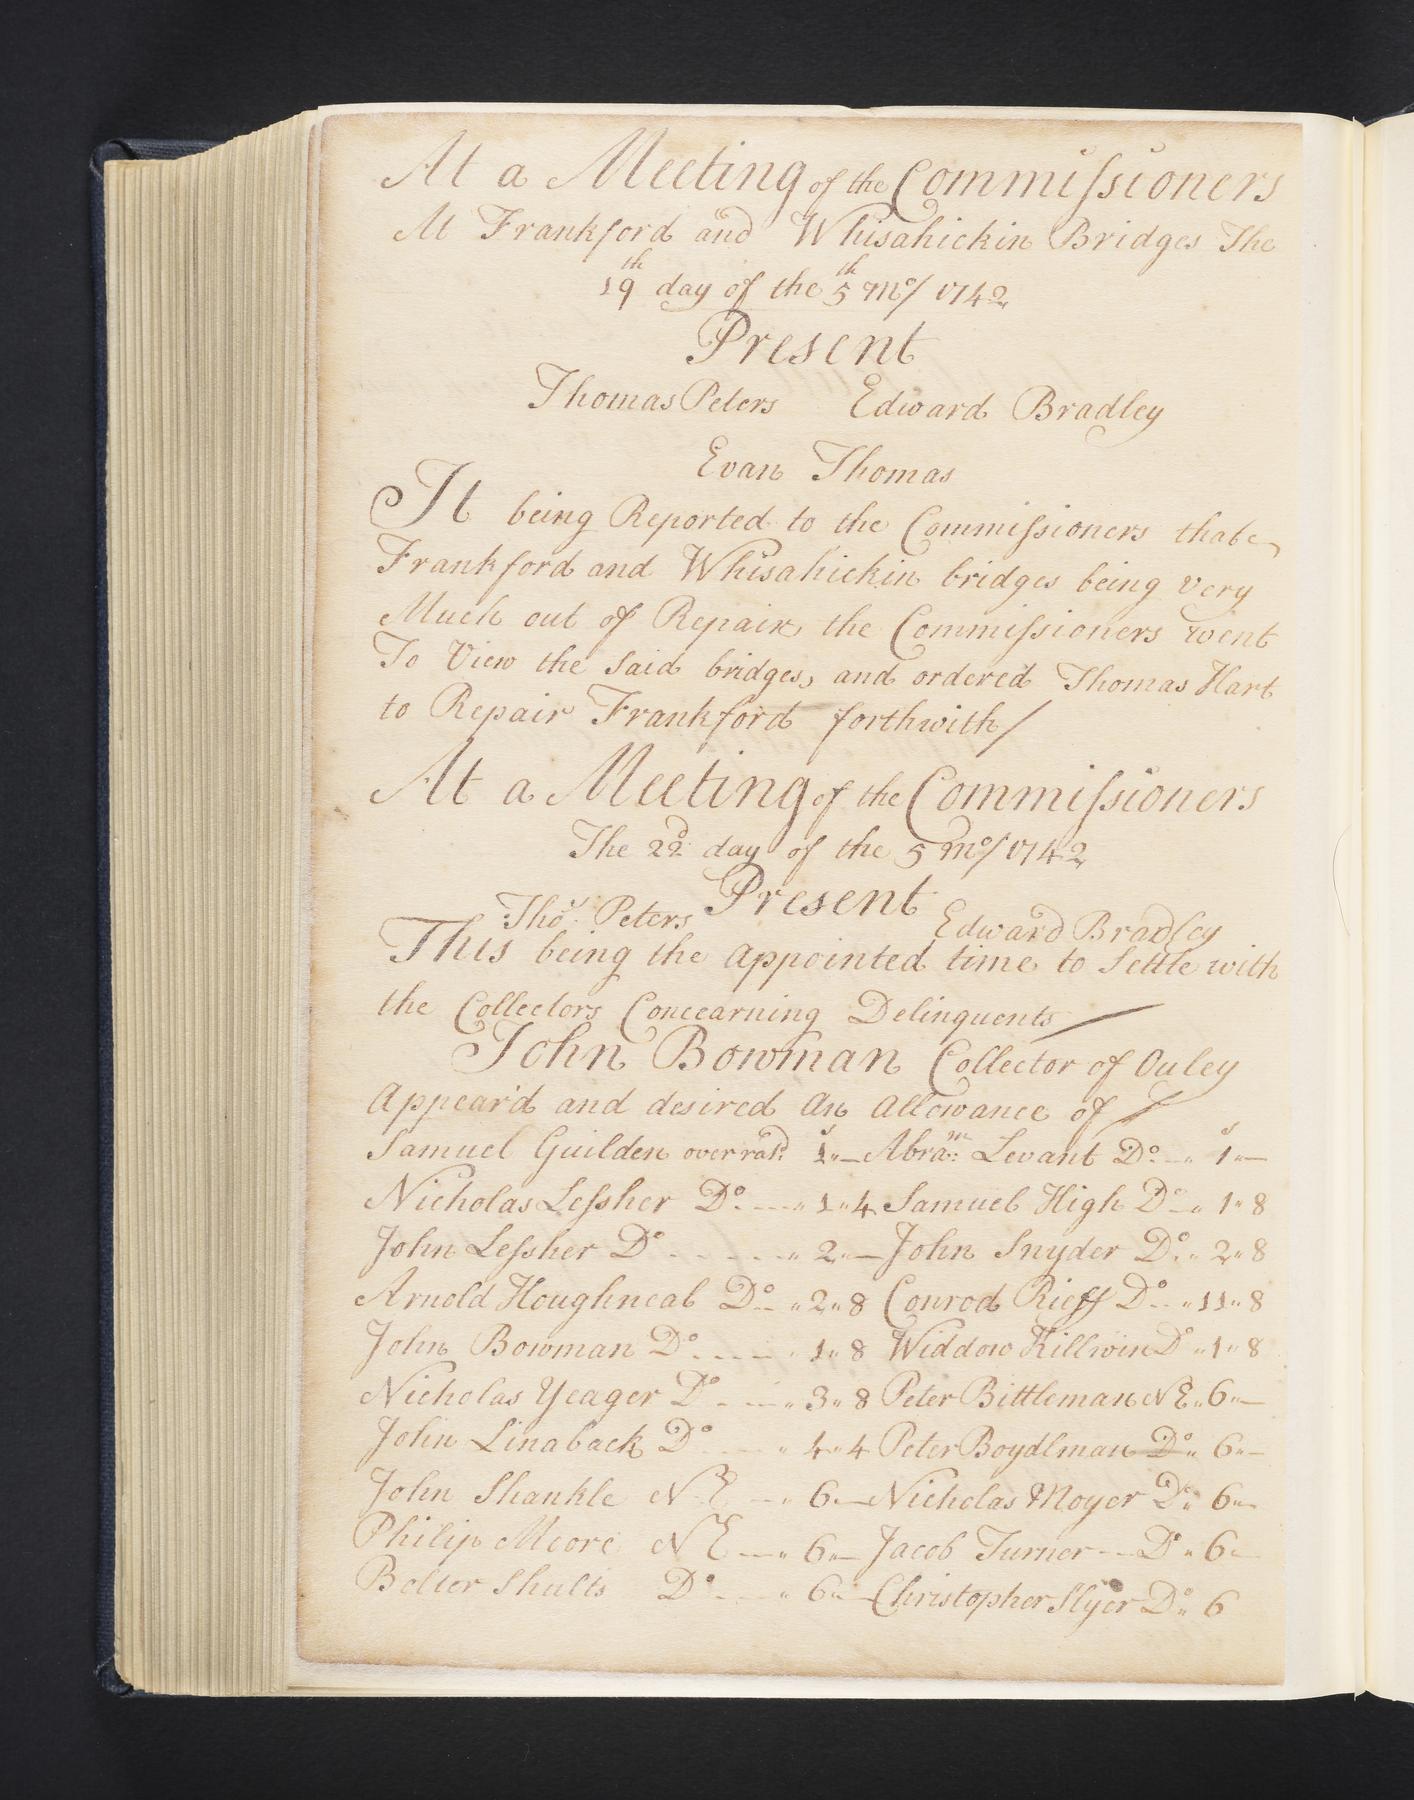 At a Meeting of the Commissioners
At Frankford and Whisahickin Bridges The
19th day of the 5th mo/ 1742
Present
Thomas Peters Edward Bradley
Evan Thomas
It being Reported to the Commissioners that
Frankford and Whisahickin bridges being very
Much out of Repair, the Commissioners went
To View the said bridges, and ordered Thomas Hart
to Repair Frankford forthwith/
At a Meeting of the Commissioners
The 22d day of the 5 mo/ 1742
Present
Thos. Peters Edward Bradley
This being the appointed time to Settle with
the Collectors Concearning Delinquents
John Bowman Collector of Ouley
Appear'd and desired An Allowance of
Samuel Guilden over ratd. 1s"— Abram: Levant Do. — " 1s"—
Nicholas Lessher Do. ---- " 1 " 4 Samuel High Do — " 1 " 8
John Lessher Do - - - - - " 2 "— John Snyder Do. " 2 " 8
Arnold Houghneal Do -- " 2 " 8 Conrod Rieff Do -- " 11 " 8
John Bowman Do ---- " 1 " 8 Widdow Killwin Do " 1 " 8
Nicholas Yeager Do - -- " 3 " 8 Peter Bittleman NE " 6 "—
John Linaback Do ---- " 4 " 4 Peter Boydlman Do " 6 "—
John Shankle NE -- " 6 "— Nicholas Moyer Do " 6 "—
Philip Moore NE --- " 6 "— Jacob Turner --- Do " 6 —
Belter Shults Do --- " 6 "— Christopher Slyer Do " 6